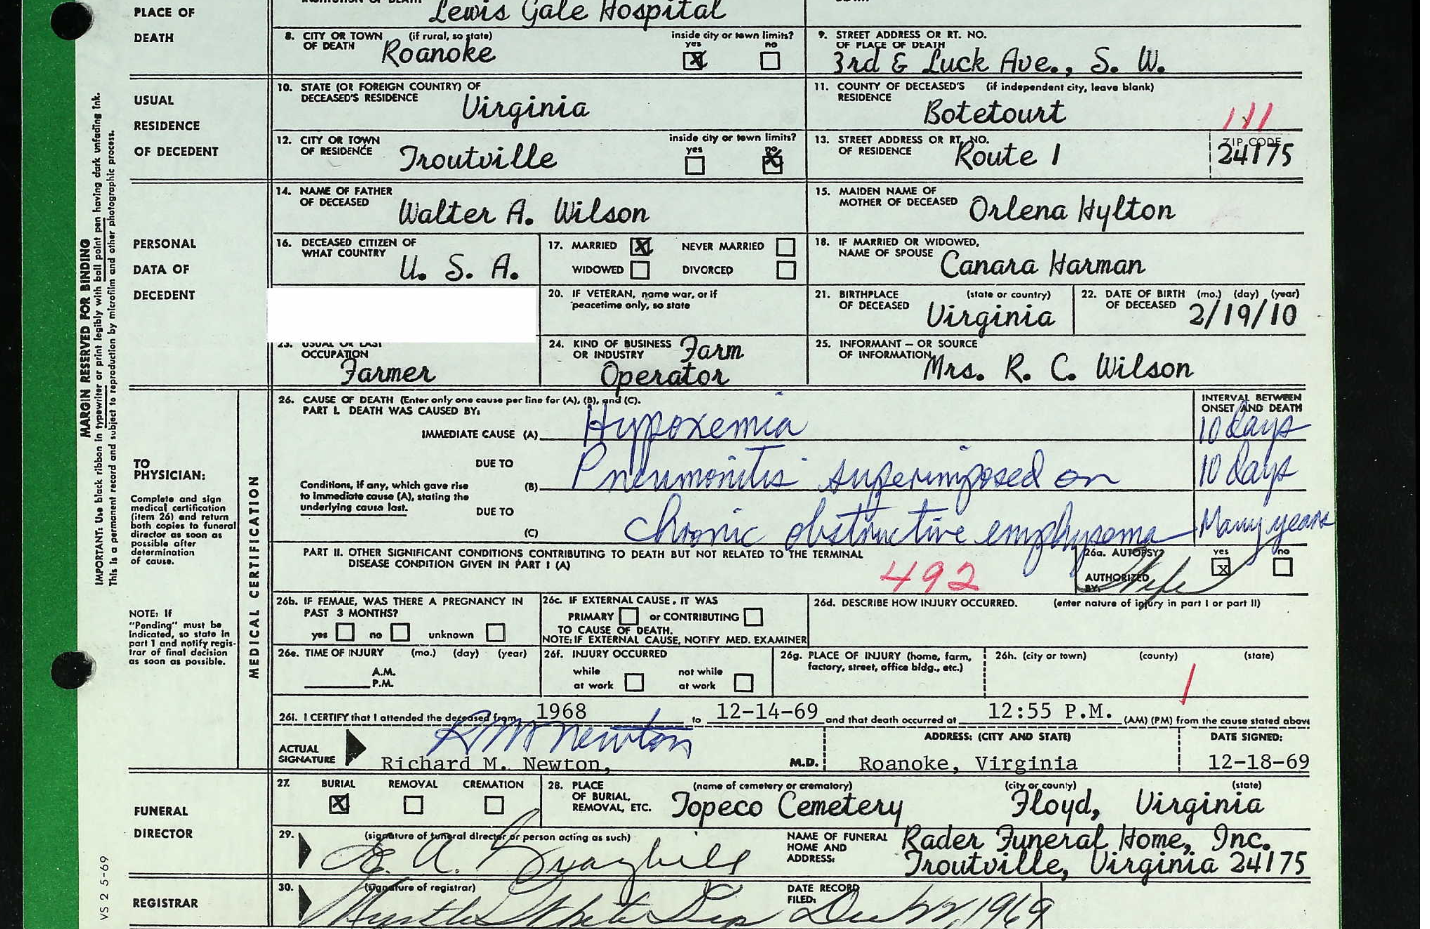 PLACE OF
DEATH
Lewis Gale Hospital
8. CITY OR TOWN (if rural, so state)
OF DEATH
Roanoke
inside city or town limits?
yes no
X
9. STREET ADDRESS OR RT. NO.
OF PLACE OF DEATH
3rd & Luck Ave., S. W.
USUAL
RESIDENCE
OF DECEDENT
10. STATE (OR FOREIGN COUNTRY) OF
DECEASED'S RESIDENCE
Virginia
11. COUNTY OF DECEASED'S (if independent city, leave blank)
RESIDENCE
Botetourt
12. CITY OR TOWN
OF RESIDENCE
Troutville
inside city or town limits?
yes no
X
13. STREET ADDRESS OR RT. NO.
OF RESIDENCE
Route 1
ZIP CODE
24175
PERSONAL
DATA OF
DECEDENT
14. NAME OF FATHER
OF DECEASED
Walter A. Wilson
15. MAIDEN NAME OF
MOTHER OF DECEASED
Orlena Hylton
16. DECEASED CITIZEN OF
WHAT COUNTRY
U. S. A.
17. MARRIED X NEVER MARRIED
WIDOWED DIVORCED
18. IF MARRIED OR WIDOWED,
NAME OF SPOUSE
Canara Harman
20. IF VETERAN, name war, or if
peacetime only, so state
21. BIRTHPLACE (state or country)
OF DECEASED
Virginia
22. DATE OF BIRTH (mo.) (day) (year)
OF DECEASED
2/19/10
23. USUAL OR LAST
OCCUPATION
Farmer
24. KIND OF BUSINESS
OR INDUSTRY
Farm
Operator
25. INFORMANT — OR SOURCE
OF INFORMATION
Mrs. R. C. Wilson
MARGIN RESERVED FOR BINDING
IMPORTANT: Use black ribbon in typewriter or print legibly with ball point pen having dark unfading ink.
This is a permanent record and subject to reproduction by microfilm and other photographic process.
TO
PHYSICIAN:
Complete and sign
medical certification
(item 26) and return
both copies to funeral
director as soon as
possible after
determination
of cause.
NOTE: If
"Pending" must be
indicated, so state in
part 1 and notify regis-
trar of final decision
as soon as possible.
MEDICAL CERTIFICATION
26. CAUSE OF DEATH (Enter only one cause per line for (A), (B), and (C).
PART I. DEATH WAS CAUSED BY:
INTERVAL BETWEEN
ONSET AND DEATH
IMMEDIATE CAUSE (A) Hypoxemia 10 days
DUE TO
Conditions, if any, which gave rise
to immediate cause (A), stating the
underlying cause last.
(B) Pneumonitis superimposed on 10 days
DUE TO
(C) chronic obstructive emphysema Many years
PART II. OTHER SIGNIFICANT CONDITIONS CONTRIBUTING TO DEATH BUT NOT RELATED TO THE TERMINAL
DISEASE CONDITION GIVEN IN PART I (A)
492
26a. AUTOPSY? yes no
X
AUTHORIZED
BY: Wife
26b. IF FEMALE, WAS THERE A PREGNANCY IN
PAST 3 MONTHS?
yes no unknown
26c. IF EXTERNAL CAUSE, IT WAS
PRIMARY or CONTRIBUTING
TO CAUSE OF DEATH.
NOTE: IF EXTERNAL CAUSE, NOTIFY MED. EXAMINER
26d. DESCRIBE HOW INJURY OCCURRED. (enter nature of injury in part I or part II)
26e. TIME OF INJURY (mo.) (day) (year)
A.M.
P.M.
26f. INJURY OCCURRED
while not while
at work at work
26g. PLACE OF INJURY (home, farm,
factory, street, office bldg., etc.)
26h. (city or town) (county) (state)
26i. I CERTIFY that I attended the deceased from 1968 to 12-14-69 and that death occurred at 12:55 P.M. (AM) (PM) from the cause stated above
ACTUAL
SIGNATURE
R M Newton
Richard M. Newton, M.D.
ADDRESS: (CITY AND STATE)
Roanoke, Virginia
DATE SIGNED:
12-18-69
FUNERAL
DIRECTOR
27. BURIAL REMOVAL CREMATION
X
28. PLACE (name of cemetery or crematory) (city or county) (state)
OF BURIAL,
REMOVAL, ETC.
Topeco Cemetery Floyd, Virginia
29. (signature of funeral director or person acting as such)
NAME OF FUNERAL
HOME AND
ADDRESS:
Rader Funeral Home, Inc.
Troutville, Virginia 24175
REGISTRAR
30. (Signature of registrar)
DATE RECORD
FILED:
Dec 22, 1969
VS 2 5-69